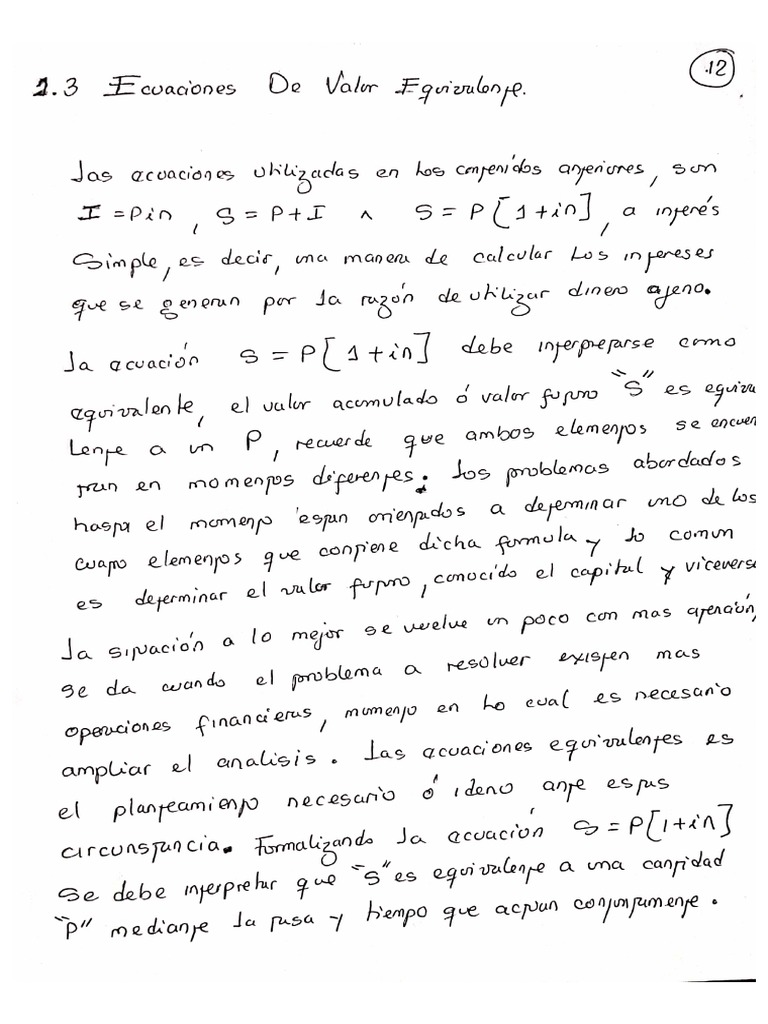 12
1.3 Ecuaciones De Valor Equivalente.
Las ecuaciones utilizadas en los contenidos anteriores, son
I = Pin, S = P + I ∧ S = P[1+in], a interés
Simple, es decir, una manera de calcular Los intereses
que se generan por la razón de utilizar dinero ajeno.
La ecuación S = P[1+in] debe interpretarse como
equivalente, el valor acumulado ó valor futuro "S" es equiva
Lente a un P, recuerde que ambos elementos se encuen
tran en momentos diferentes. Los problemas abordados
hasta el momento estan orientados a determinar uno de los
cuatro elementos que contiene dicha formula y lo comun
es determinar el valor futuro, conocido el capital y viceversa
La situación a lo mejor se vuelve un poco con mas atención,
se da cuando el problema a resolver existen mas
operaciones financieras, momento en Lo cual es necesario
ampliar el analisis. Las ecuaciones equivalentes es
el planteamiento necesario ó ideno ante estas
circunstancia. Formalizando La ecuación S = P[1+in]
Se debe interpretar que "S" es equivalente a una cantidad
"P" mediante la tasa y tiempo que actuan conjuntamente.